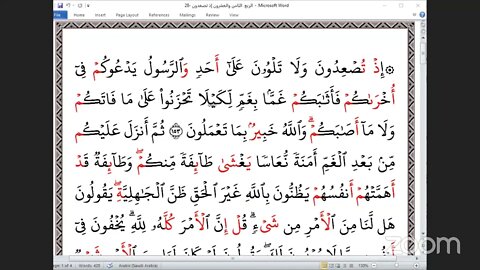 الربع الثامن والعشرون إذ تصعدون -28 - Microsoft Word
File Home Insert Page Layout References Mailings Review View
۞ إِذْ تُصْعِدُونَ وَلَا تَلْوُۥنَ عَلَىٰٓ أَحَدٍ وَٱلرَّسُولُ يَدْعُوكُمْ فِىٓ
أُخْرَىٰكُمْ فَأَثَـٰبَكُمْ غَمًّۢا بِغَمٍّ لِّكَيْلَا تَحْزَنُوا۟ عَلَىٰ مَا فَاتَكُمْ
وَلَا مَآ أَصَـٰبَكُمْ ۗ وَٱللَّهُ خَبِيرٌۢ بِمَا تَعْمَلُونَ ﴿١٥٣﴾ ثُمَّ أَنزَلَ عَلَيْكُم
مِّنۢ بَعْدِ ٱلْغَمِّ أَمَنَةً نُّعَاسًا يَغْشَىٰ طَآئِفَةً مِّنكُمْ ۖ وَطَآئِفَةٌ قَدْ
أَهَمَّتْهُمْ أَنفُسُهُمْ يَظُنُّونَ بِٱللَّهِ غَيْرَ ٱلْحَقِّ ظَنَّ ٱلْجَـٰهِلِيَّةِ ۖ يَقُولُونَ
هَل لَّنَا مِنَ ٱلْأَمْرِ مِن شَىْءٍ ۗ قُلْ إِنَّ ٱلْأَمْرَ كُلَّهُۥ لِلَّهِ ۗ يُخْفُونَ فِىٓ
Words: 400 Arabic (Saudi Arabia)
zoom